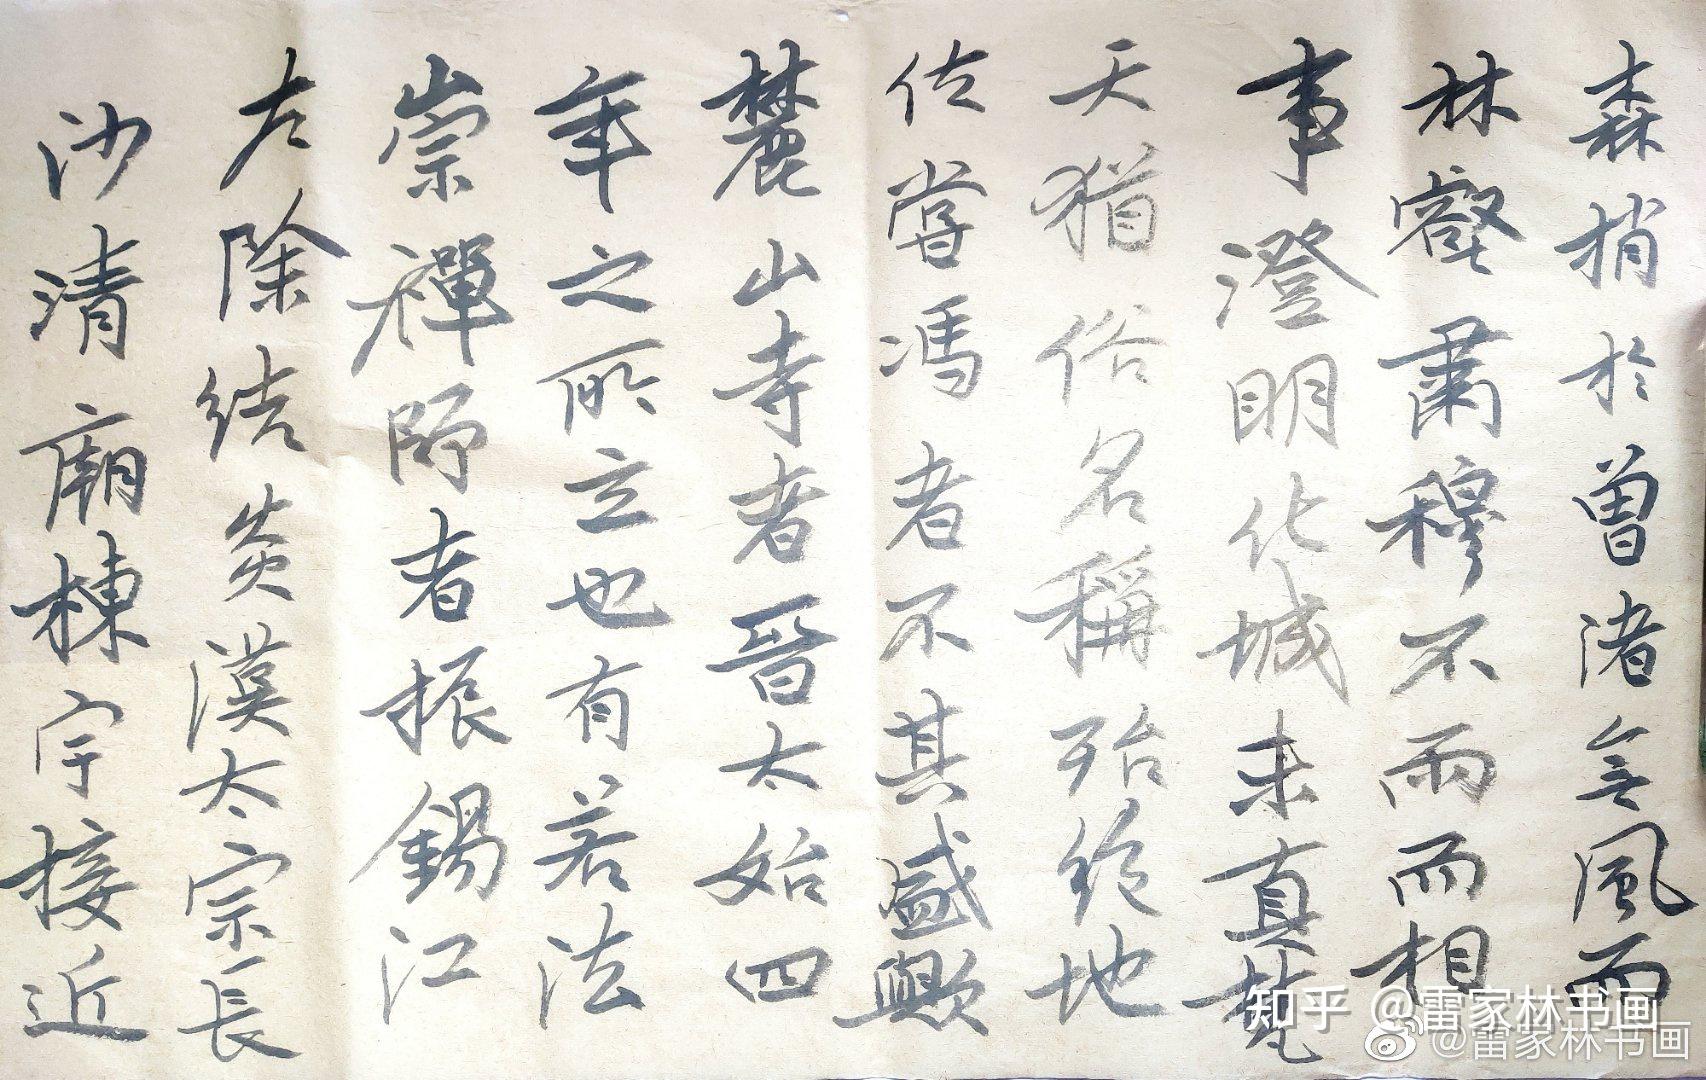 森梢於曾渚無風而
林壑肅穆不雨而相
事澄明化城未真梵
天猶俗名稱殆絕地
位嘗馮者不其盛歟
麓山寺者晉太始四
年之所立也有若法
崇禪師者振錫江
左除結炎漢太宗長
沙清廟棟宇接近
知乎 @雷家林书画
@雷家林书画